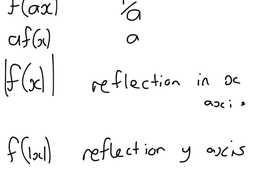 f(ax) 1/a
af(x) a
|f(x)| reflection in x
axis
f(|x|) reflection y axis